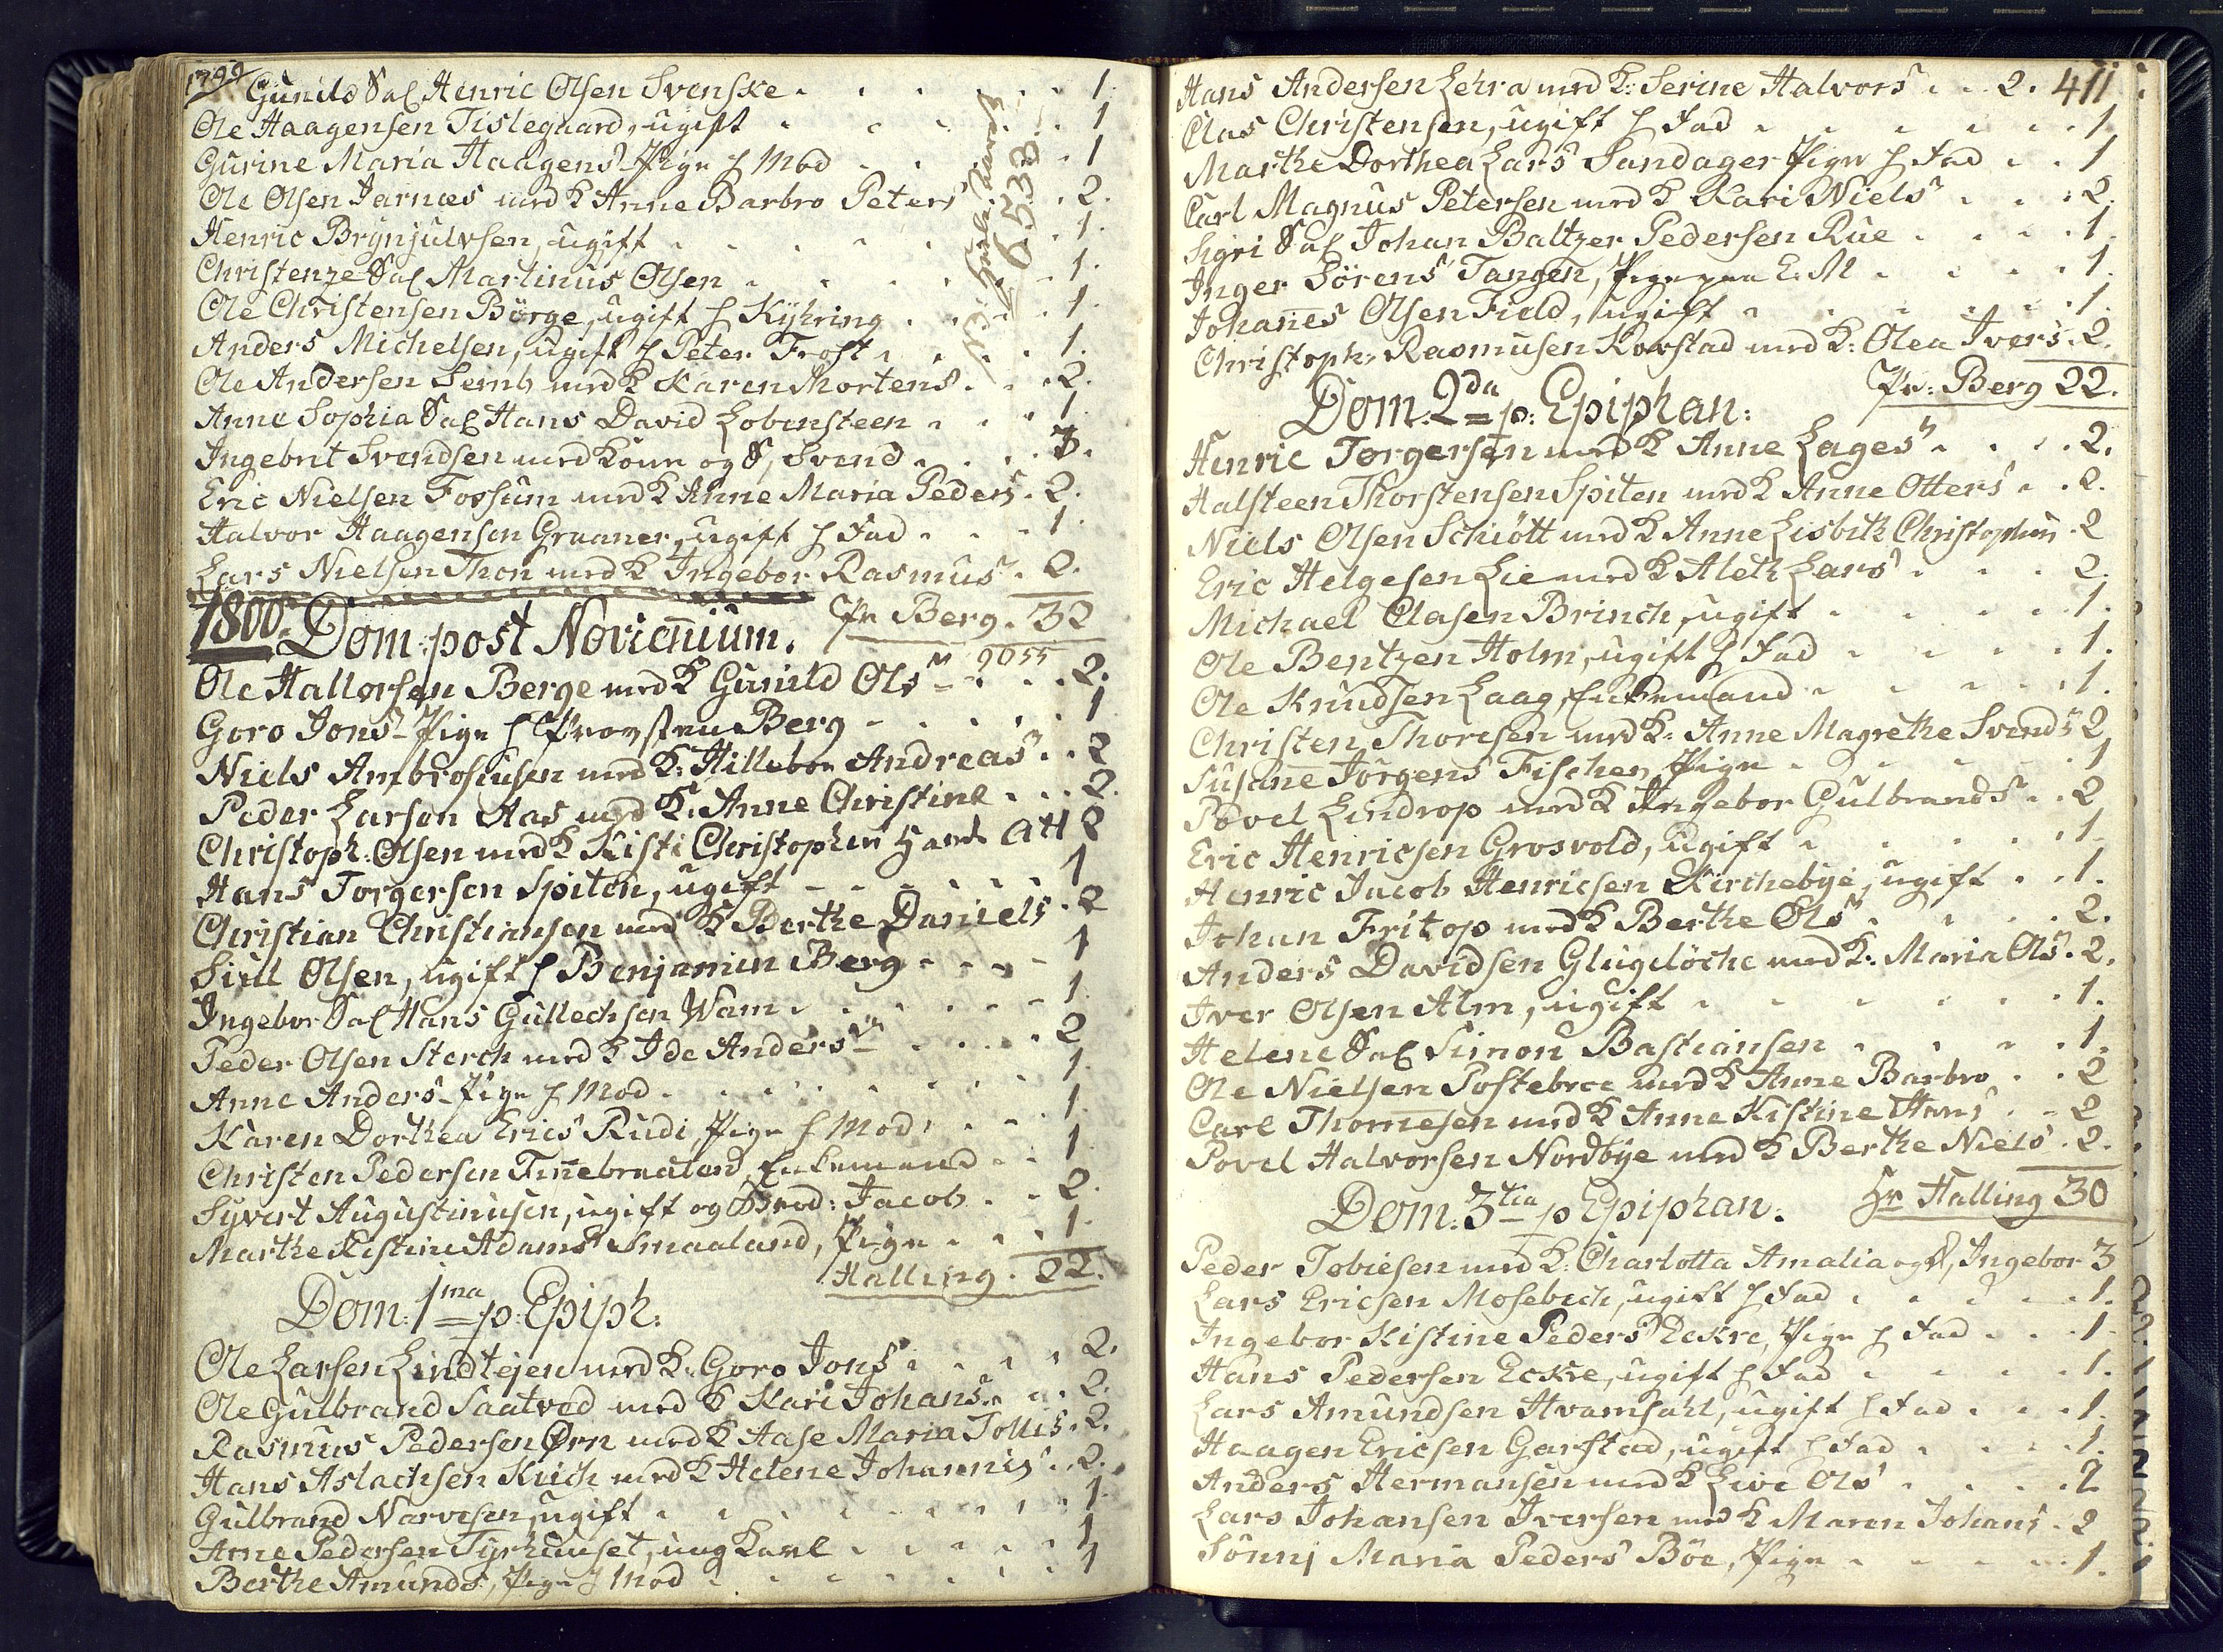 1799
Gunild Sal Henric Olsen Svenske 1.
Ole Haagensen Tislegaard, ugift 1
Gurine Maria Haagens Pige h Mod 1
Ole Olsen Jarnæs med K Anne Barbro Peters 2.
Henric Brynjulvsen, ugift 1.
Christenze Sal Martinus Olsen 1.
Ole Christensen Börge, ugift h Kyhring 1.
Anders Michelsen, ugift h Peter Frost 1.
Ole Andersen Semb med K Karen Mortens 2.
Anne Sophia Sal Hans David Lobensteen 1.
Ingebret Svendsen med Kone og S, Svend 3.
Eric Nielsen Fossum med K Anne Maria Peders 2.
Halvor Haagensen Graaner, ugift h Fad 1.
Lars Nielsen Thon med K Ingebor Rasmus 2.
6533
Pr Berg. 32
1800. Dom: post Novieñium.
Ole Hallorsen Berge med K Gunild Ols 2.
Goro Jons Pige h Provsten Berg 1
Niels Ambrosiusen med K: Hillebor Andreas 2
Peder Larsen Aas med K: Anne Christine 2.
Christoph: Olsen med K Kisti Christophers 2
Hans Torgersen Spiten, ugift 1
Christian Christiansen med K Berthe Daniels 2
Siul Olsen, ugift h Benjamin Berg 1
Ingebor Sal Hans Gullechsen Wam 1.
Peder Olsen Sterch med K Ide Anders 2
Anne Anders Pige h Mod 1.
Karen Dorthea Erics Rudi, Pige h Mod 1.
Christen Pedersen Fiñebraaten, Enkemand 1
Syvert Augustinusen, ugift og Brod: Jacob 2.
Marthe Kistine Adams Smaaland, Pige 1.
Halling. 22.
Dom: 1ma p: Epiph:
Ole Larsen Lindtejen med K: Goro Jons 2.
Ole Gulbrand Saatvod med K Kari Johans 2.
Rasmus Pedersen Ørn med K Aase Maria Tolles 2.
Hans Aslachsen Kiich med K Helene Johannis 2.
Gulbrand Narvesen, ugift 1
Arne Pedersen Tyrhuuset, ung Karl 1
Berthe Amunds, Pige h Mod 1
411
Hans Andersen Lehra med K: Serine Halvors 2.
Clas Christensen, ugift h Fad 1.
Marthe Dorthea Lars Sandager Pige h Fad 1
Carl Magnus Petersen med K Kari Niels 2.
Sigri Sal Johan Baltzer Pedersen Rue 1.
Inger Sörens Tangen, Pige paa E. M 1.
Johañes Olsen Field, ugift 1.
Christoph: Rasmusen Korstad med K: Olea Ivers 2.
Pr: Berg 22.
Dom: 2da p: Epiphan:
Henric Torgersen med K Anne Lages 2.
Halsteen Thorstensen Spiten med K Anne Otters 2.
Niels Olsen Schiött med K Anne Lisbeth Christophers 2
Eric Helgesen Lie med K Aleth Lars 2.
Michael Clasen Brinch, ugift 1.
Ole Bentzen Holm, ugift h Fad 1.
Ole Knudsen Laag, Enkemand 1.
Christen Thoresen med K: Anne Magrethe Svends 2
Susañe Jörgens Fischer, Pige 1
Povel Lindrop med K Ingebor Gulbrands 2
Eric Henricsen Grosvold, ugift 1
Henric Jacob Henricsen Kirchebye, ugift 1.
Johan Fritop med K Berthe Ols 2.
Anders Davidsen Glugelöche med K: Maria Ols 2.
Iver Olsen Alm, ugift 1.
Helene Sal Simon Bastiansen 1.
Ole Nielsen Postebree med K Anne Barbro 2
Carl Thomesen med K Anne Kistine Hans 2
Povel Halvorsen Nordbye med K Berthe Niels 2.
Hr Halling 30
Dom: 3tia p Epiphan:
Peder Tobiesen med K: Charlotta Amalia og D, Ingebor 3
Lars Ericsen Mosebech, ugift h Fad 1.
Ingebor Kistine Peders Eckre, Pige h Fad 1
Hans Pedersen Eckre, ugift h Fad 1.
Lars Amundsen Hvamsahl, ugift h Fad 1.
Haagen Ericsen Garstad, ugift h Fad 1.
Anders Hermansen med K Live Ols 2
Lars Johansen Iversen med K Maren Johans 2
Sönnj Maria Peders Böe, Pige 1.